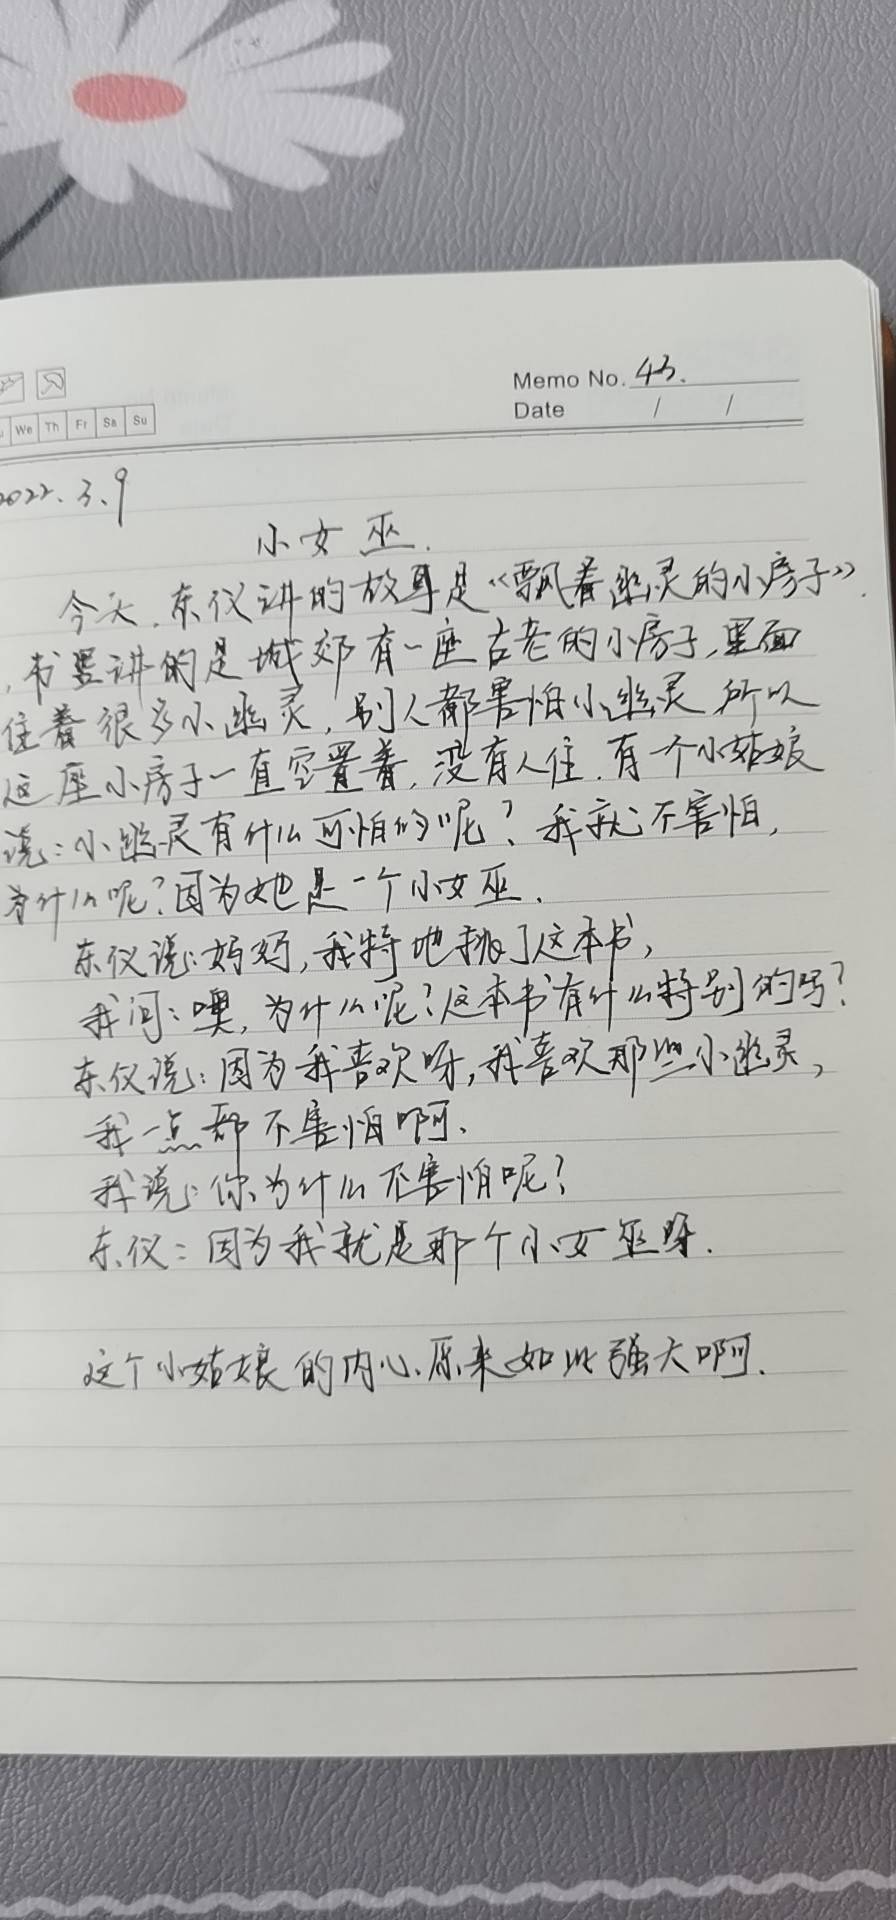 Memo No. 43.
Date / /
We Th Fr Sa Su
2022.3.9
小女巫.
今天,东仪讲的故事是《飘着幽灵的小房子》.
,书里讲的是城郊有一座古老的小房子,里面
住着很多小幽灵,别人都害怕小幽灵,所以
这座小房子一直空置着,没有人住.有一个小姑娘
说:小幽灵有什么可怕的呢?我就不害怕,
为什么呢?因为她是一个小女巫.
东仪说:妈妈,我特地挑了这本书,
我问:噢,为什么呢?这本书有什么特别的吗?
东仪说:因为我喜欢呀,我喜欢那些小幽灵,
我一点都不害怕啊、
我说:你为什么不害怕呢?
东仪:因为我就是那个小女巫呀.
这个小姑娘的内心原来如此强大啊.